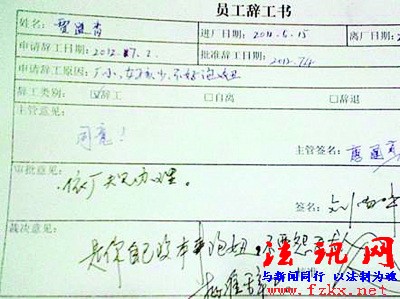 员工辞工书
姓名: 进厂日期:2011.6.15 离厂日期:2
申请辞工日期:2012.7.2. 批准辞工日期:2012.7.4
申请辞工原因:厂小,女孩少,不好泡妞
辞工类别: ☑辞工 □自离 □辞退
主管意见:
同意!
主管签名:
审批意见:
依厂规办理。
签名:
裁决意见:
是你自己没本事泡妞,不要怨
批准
法讯网
与新闻同行 以法制为
www.fzkx.net